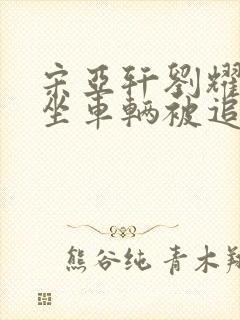 宋亚轩劉耀
坐車辆被追
熊谷纯 青木翔